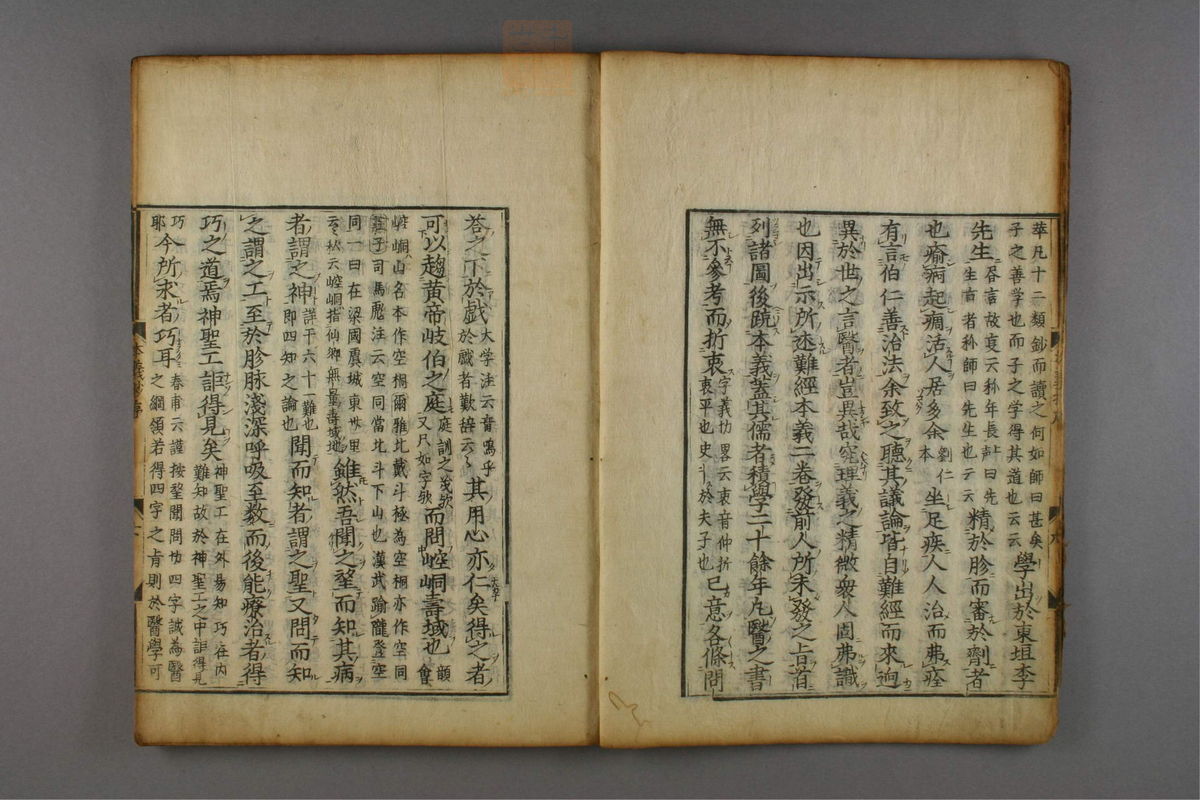 華凡十二類鈔而讀之何如師曰甚矣
子之善学也而子之字得其道也云云
學出於東垣李
先生
生者者称師曰先生也云云
精於胗而審於劑者
也瘉痾起痼活人居多余
劉仁
本
坐足疾人人治而弗痊
有言伯仁善治法余致之聽其議論皆自難經而來迥
異於世之言醫者豈異哉究理義之精微衆人固弗識
也因出示所述難經本義二卷發前人所未發之旨首
列諸圖後疏本義蓋其儒者積學二十餘年凡醫之書
無不參考而折衷
衷平也史
於夫子也
己意各條問
荅之下於戲
大学注云音嗚乎
於戲者歎辞云云
其用心亦仁矣得之者
可以趨黄帝岐伯之庭
而問崆峒壽域也
崆峒山名本作空桐爾雅北戴斗極為空桐亦作空同
莊子司馬彪注云空同當北斗下山也漢武踰隴登空
同一曰在梁國虞城東卅里
云々
雖然吾聞之望而知其病
者謂之神
詳平六十一難也
即四知之論也
聞而知者謂之聖又問而知
之謂之工至於胗脉淺深呼吸至數而後能療治者得
巧之道焉神聖工詎得見矣
神聖工在外易知巧在内
難知故於神聖工之中詎得見
巧
耶今所求者巧耳
春甫云謹按望聞問切四字誠為醫
之綱領若得四字之肯則於醫學可